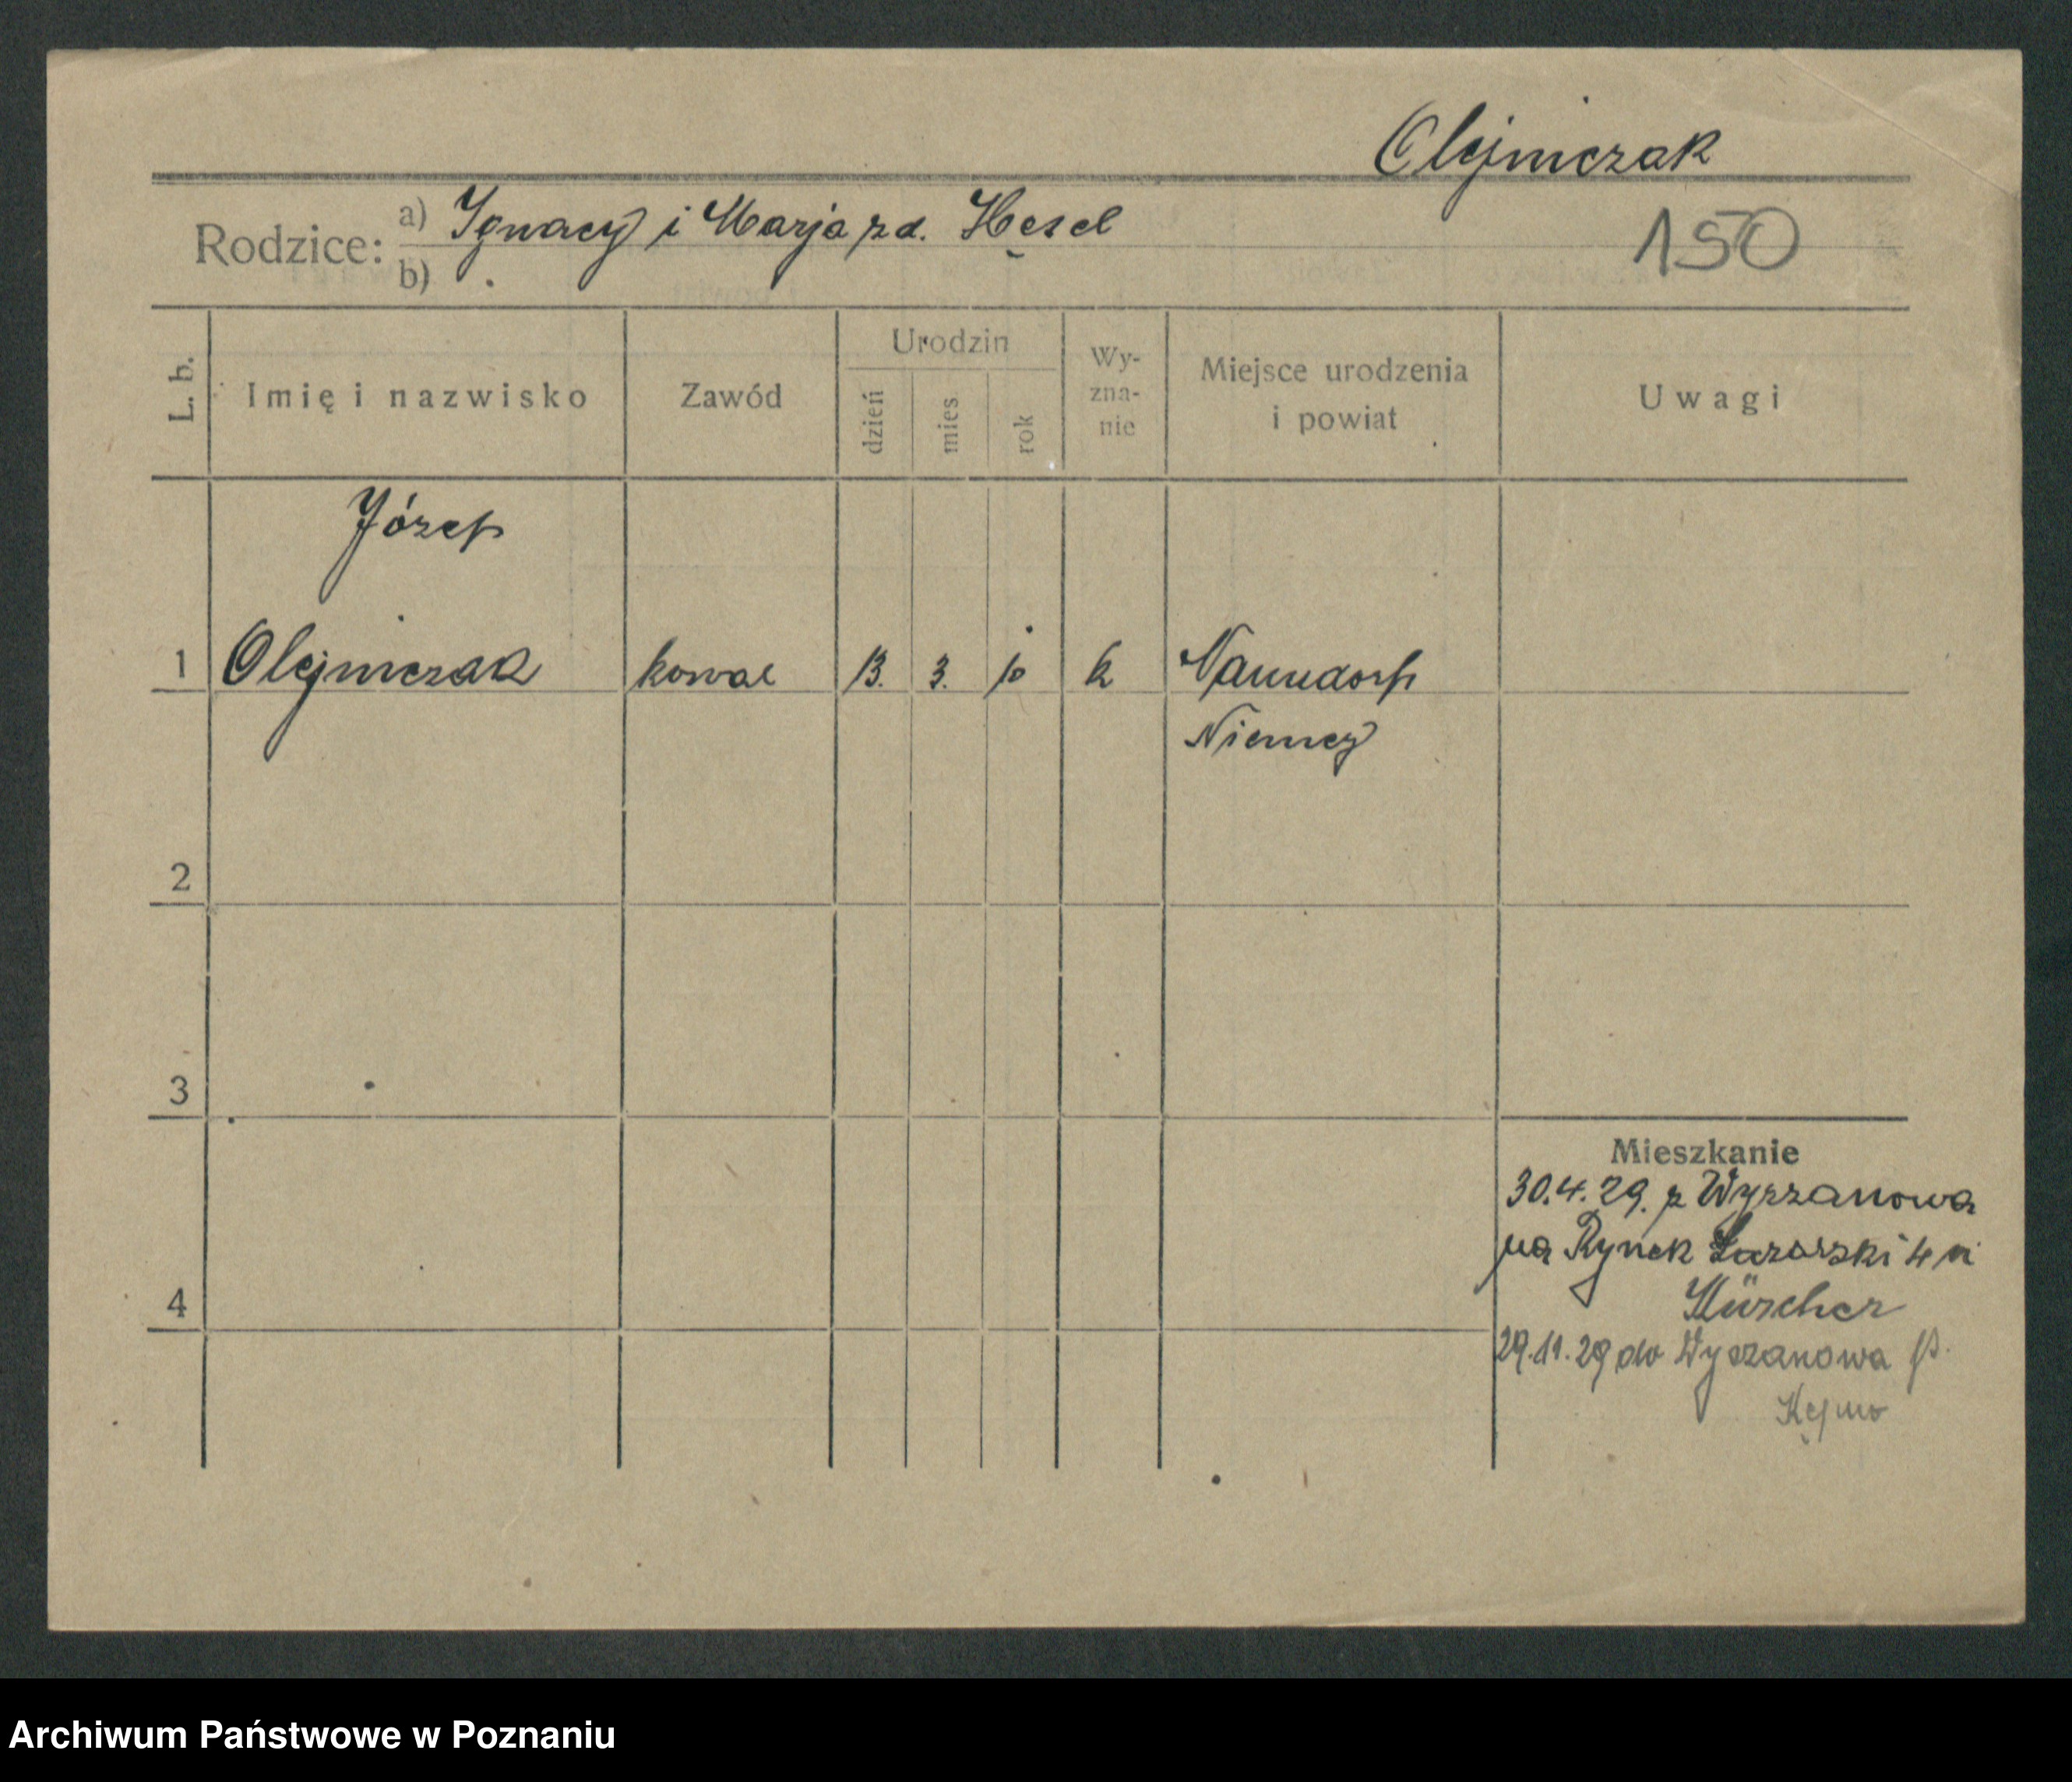 Olejniczak
Rodzice: a) Ignacy i Marja zd. Hęsel
b)
150
L. b. Imię i nazwisko Zawód Urodzin dzień mies rok Wy-zna-nie Miejsce urodzenia i powiat Uwagi
Józef
1 Olejniczak kowal 13. 3. 10 k Naundorf
Niemcy
2
3
Mieszkanie
30.4.29. z Wyszanowa
na Rynek Łazarski 4 
4
29.11.29 do Wyszanowa p.
Kępno
Archiwum Państwowe w Poznaniu